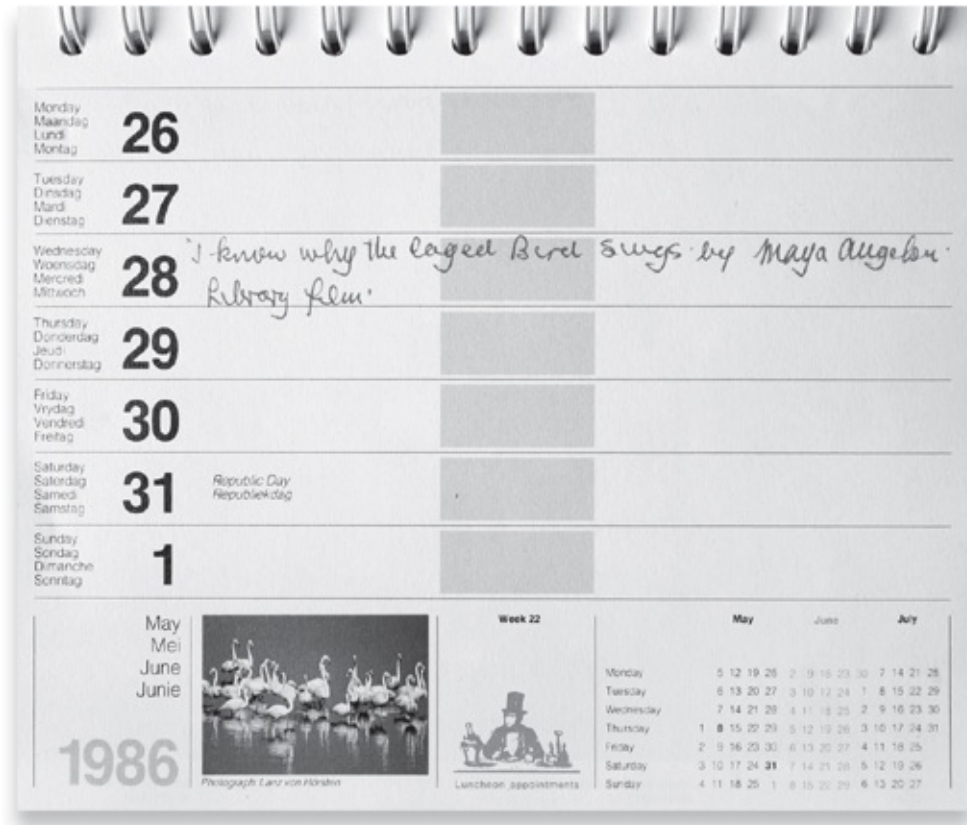 Monday
Maandag
Lundi
Montag
26
Tuesday
Dinsdag
Mardi
Dienstag
27
Wednesday
Woensdag
Mercredi
Mittwoch
28
'I know why the Caged Bird sings by Maya Angelou.
Library film.
Thursday
Donderdag
Jeudi
Donnerstag
29
Friday
Vrydag
Vendredi
Freitag
30
Saturday
Saterdag
Samedi
Samstag
31
Republic Day
Republiekdag
Sunday
Sondag
Dimanche
Sonntag
1
May
Mei
June
Junie
1986
Photograph: Lanz von Hörsten
Week 22
Luncheon appointments
May June July
Monday 5 12 19 26 2 9 16 23 30 7 14 21 28
Tuesday 6 13 20 27 3 10 17 24 1 8 15 22 29
Wednesday 7 14 21 28 4 11 18 25 2 9 16 23 30
Thursday 1 8 15 22 29 5 12 19 26 3 10 17 24 31
Friday 2 9 16 23 30 6 13 20 27 4 11 18 25
Saturday 3 10 17 24 31 7 14 21 28 5 12 19 26
Sunday 4 11 18 25 1 8 15 22 29 6 13 20 27